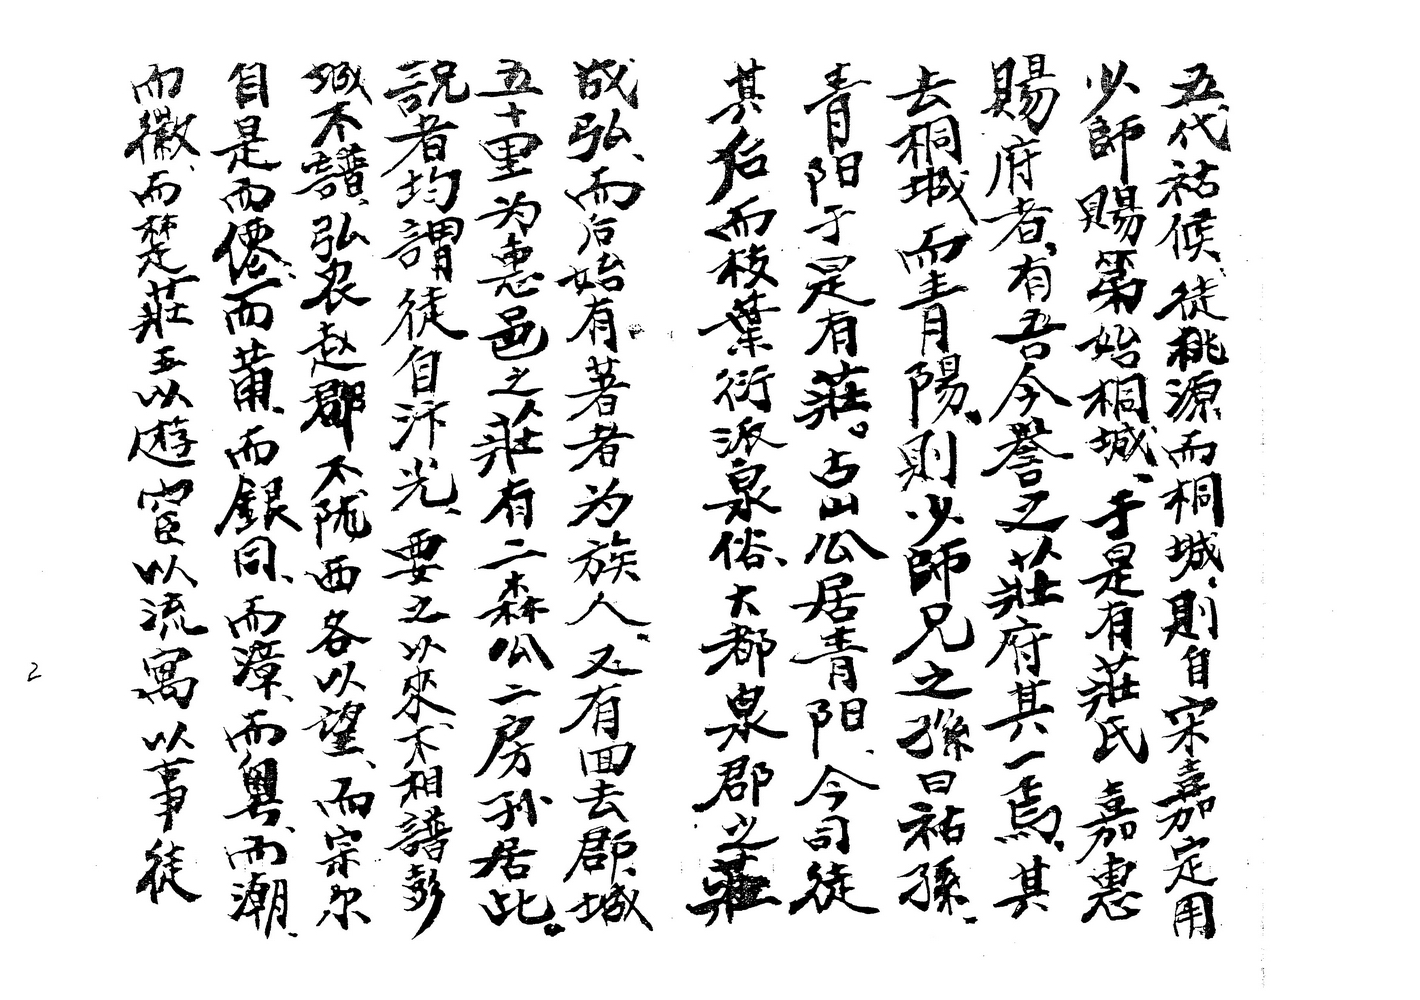 五代祜候、徒桃源、而桐城、則自宋嘉定用
少師賜第始桐城、于是有莊氏嘉惠
賜府者、有吾今誉之莊府其一焉、其
去桐城而青陽、則少師兄之孫曰祜孫、
青阳于是有莊。古山公居青阳、今司徒
其后而枝葉衍派泉俗、大都泉郡之莊
成弘、而后始有著者为族人、又有回去郡城
五十里为惠邑之莊有二森公二房孙居此。
説者均謂徒自汴光、要之以來、不相譜彭
城不譜、弘农赵郡不陇西各以望、而宗尔
自是而僊、而莆、而銀同、而漳、而粤、而潮、
而徽、而楚莊五以遊宦以流寓以事徒
2